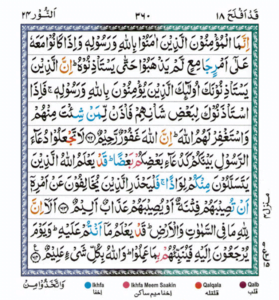 قَدْ اَفْلَحَ ١٨ ٣٢٠ اَلنُّوْر ٢٤
اِنَّمَا الْمُؤْمِنُوْنَ الَّذِيْنَ اٰمَنُوْا بِاللّٰهِ وَرَسُوْلِهٖ وَاِذَا كَانُوْا مَعَهٗ
عَلٰٓى اَمْرٍ جَامِعٍ لَّمْ يَذْهَبُوْا حَتّٰى يَسْتَاْذِنُوْهُ ؕ اِنَّ الَّذِيْنَ
يَسْتَاْذِنُوْنَكَ اُولٰٓئِكَ الَّذِيْنَ يُؤْمِنُوْنَ بِاللّٰهِ وَرَسُوْلِهٖ ۚ فَاِذَا
اسْتَاْذَنُوْكَ لِبَعْضِ شَاْنِهِمْ فَاْذَنْ لِّمَنْ شِئْتَ مِنْهُمْ
وَاسْتَغْفِرْ لَهُمُ اللّٰهَ ؕ اِنَّ اللّٰهَ غَفُوْرٌ رَّحِيْمٌ ۝ لَا تَجْعَلُوْا دُعَآءَ
الرَّسُوْلِ بَيْنَكُمْ كَدُعَآءِ بَعْضِكُمْ بَعْضًا ؕ قَدْ يَعْلَمُ اللّٰهُ الَّذِيْنَ
يَتَسَلَّلُوْنَ مِنْكُمْ لِوَاذًا ۚ فَلْيَحْذَرِ الَّذِيْنَ يُخَالِفُوْنَ عَنْ اَمْرِهٖٓ
اَنْ تُصِيْبَهُمْ فِتْنَةٌ اَوْ يُصِيْبَهُمْ عَذَابٌ اَلِيْمٌ ۝ اَلَاۤ اِنَّ
لِلّٰهِ مَا فِى السَّمٰوٰتِ وَالْاَرْضِ ؕ قَدْ يَعْلَمُ مَاۤ اَنْتُمْ عَلَيْهِ ؕ وَيَوْمَ
يُرْجَعُوْنَ اِلَيْهِ فَيُنَبِّئُهُمْ بِمَا عَمِلُوْا ؕ وَاللّٰهُ بِكُلِّ شَىْءٍ عَلِيْمٌ ۝
Ikhfa اخفا Ikhfa Meem Saakin اخفا میم ساکن Qalqala قلقلہ Qalb قلب